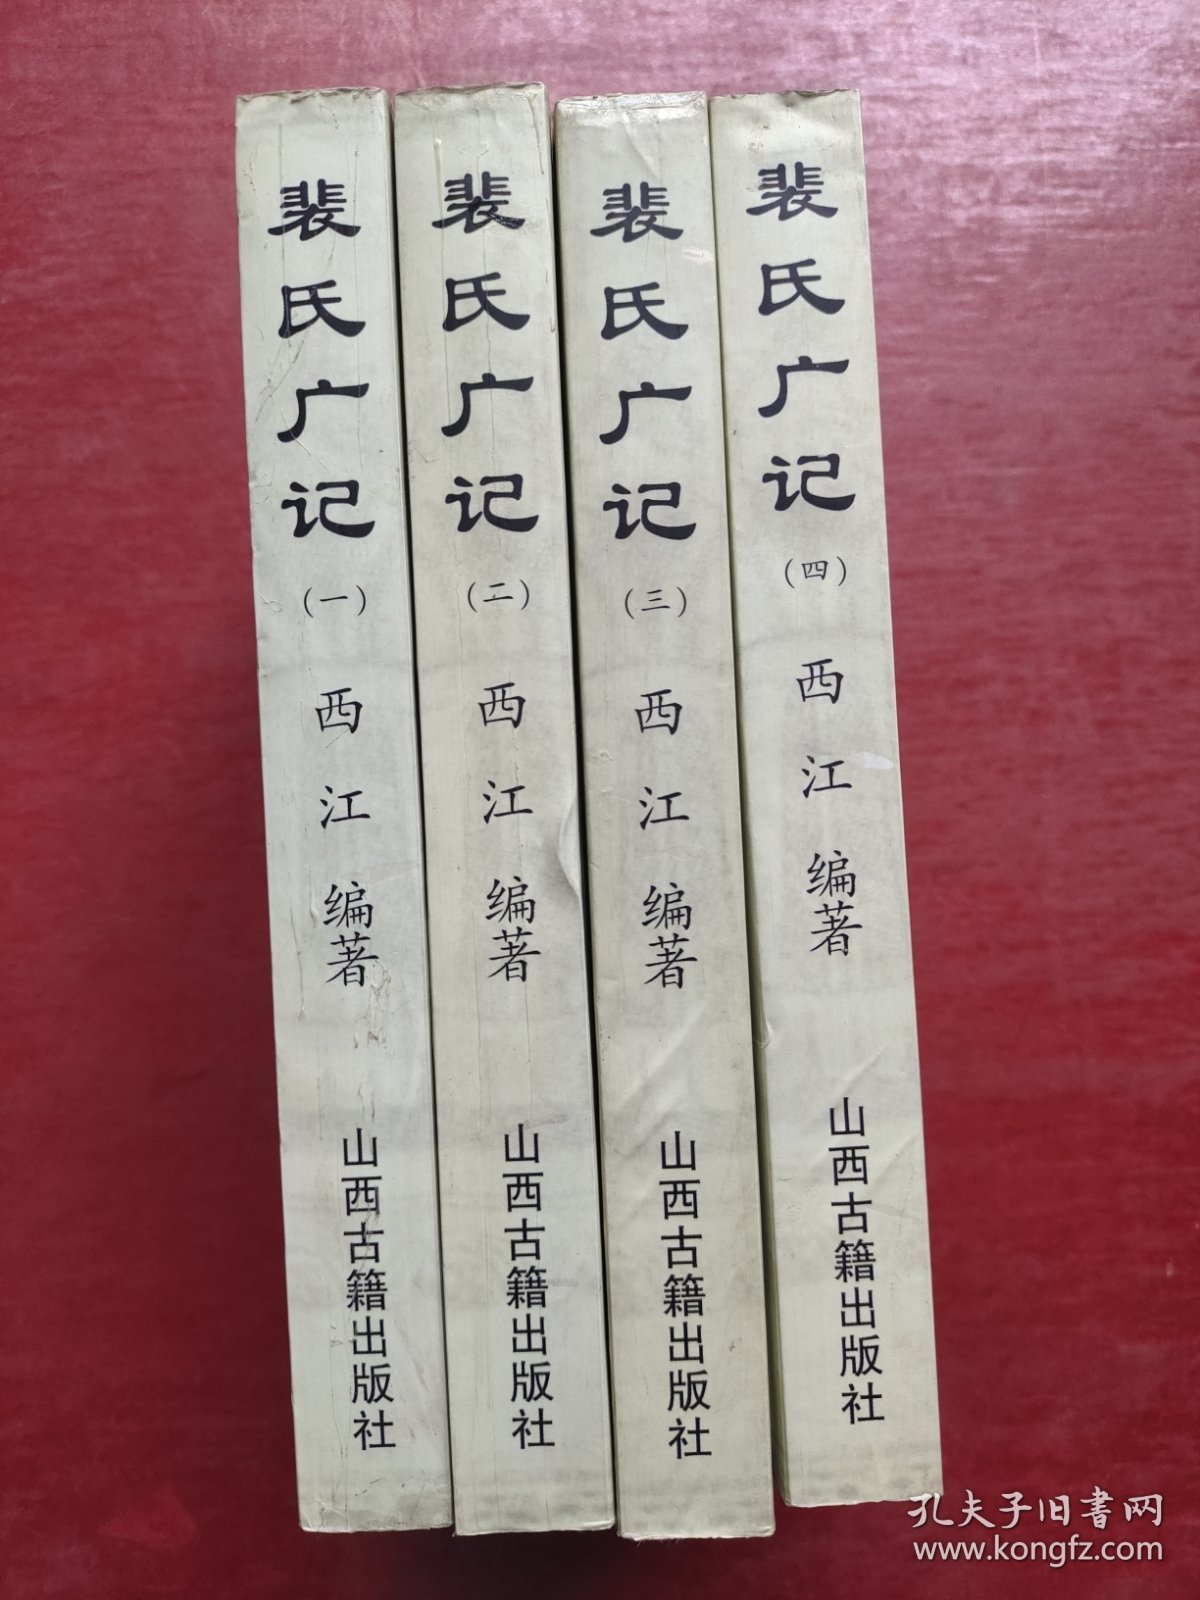 裴氏广记
(一)
西江 编著
山西古籍出版社
裴氏广记
(二)
西江 编著
山西古籍出版社
裴氏广记
(三)
西江 编著
山西古籍出版社
裴氏广记
(四)
西江 编著
山西古籍出版社
孔夫子旧書网
www.kongfz.com